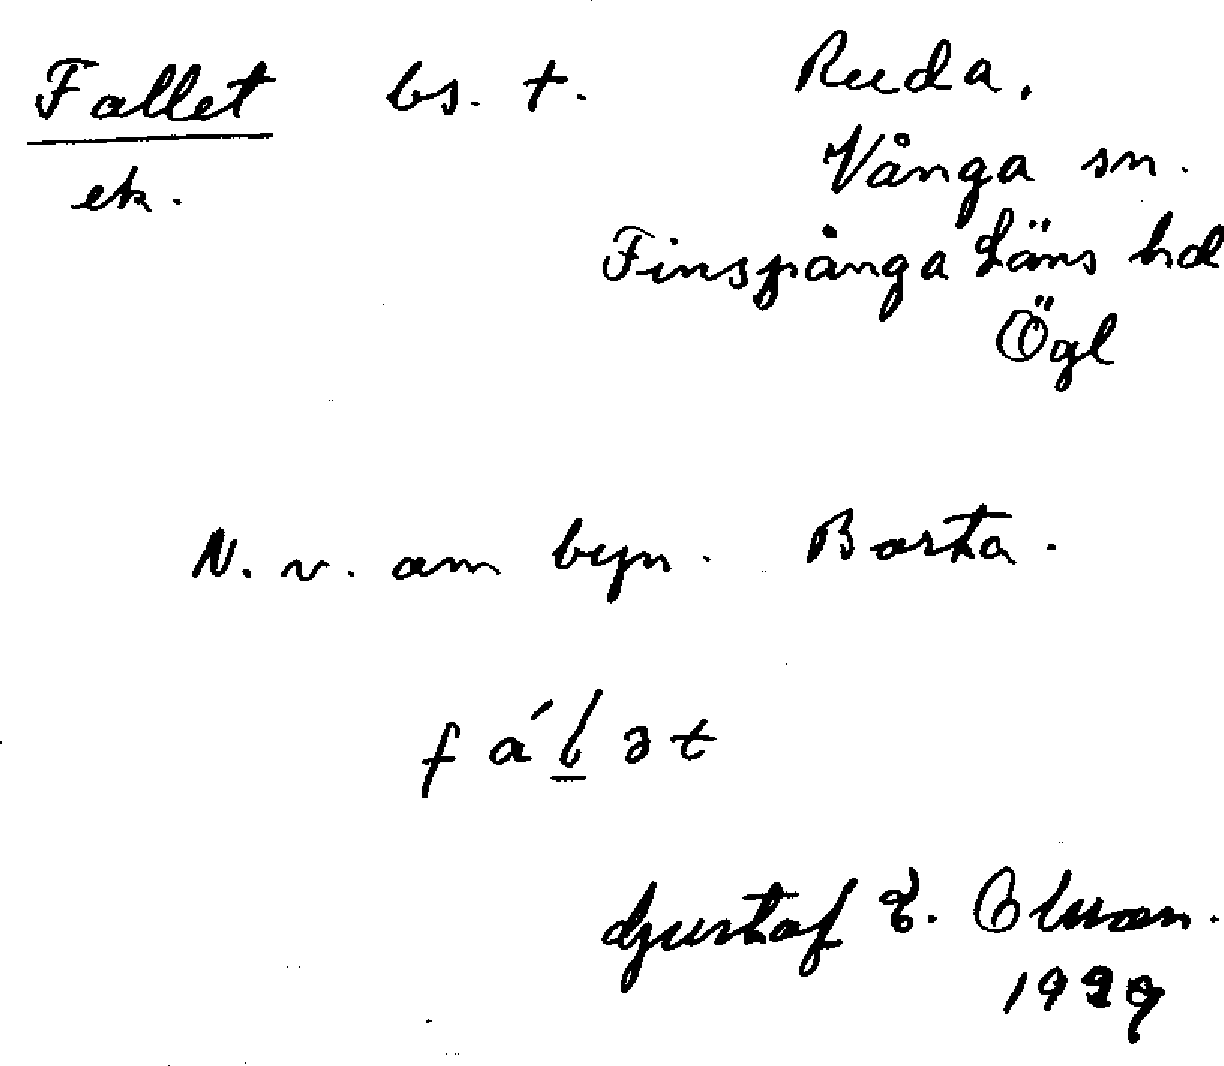 Fallet bs. t. Ruda.
ek. Vånga sn.
Finspånga Läns hd
Ögl
N. v. om byn. Borta.
fálət
Gustaf E. Olsson.
1929